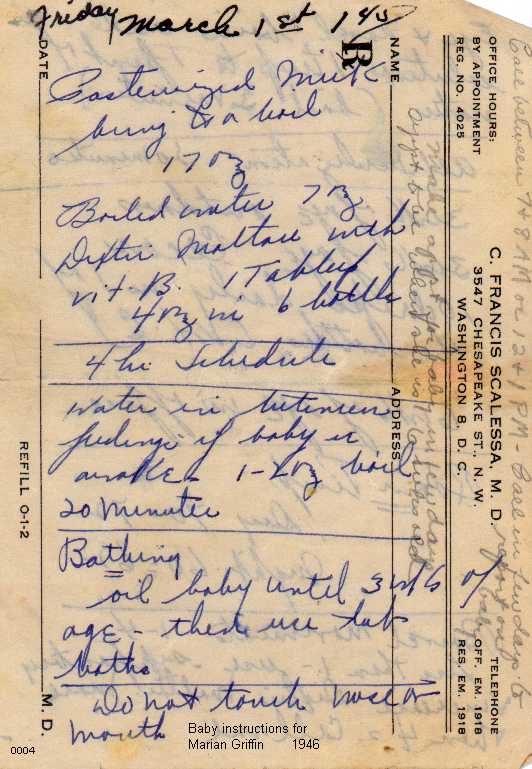 Friday March 1st
Pasteurized Milk
bring to a boil
17 oz
Boiled water 7 oz
Dextri Maltose with
vit. B. 1 Table
4 oz in 6 bottles
4 hr Schedule
Water in between
feedings if baby is
awake - 1-2 oz boil
20 minutes
Bathing
oil baby until 3 wks of
age - then use tub
baths
Do not touch nose or
mouth
Baby instructions for
Marian Griffin 1946
0004
C. FRANCIS SCALESSA, M. D.
3547 CHESAPEAKE ST., N. W.
WASHINGTON 8, D. C.
OFFICE HOURS:
BY APPOINTMENT
REG. NO. 4025
TELEPHONE
OFF. EM. 1918
RES. EM. 1918
NAME
ADDRESS
℞
DATE
REFILL 0-1-2
M. D.
Call between 7 + 8 AM or 12 + 1 PM - Call in few days to
report on
baby